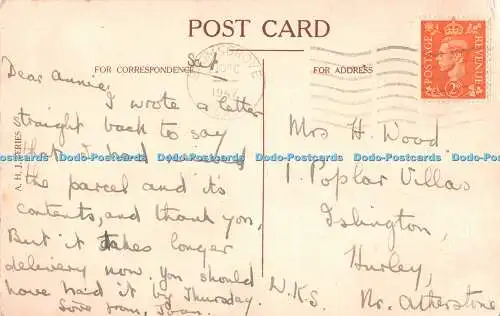 POST CARD
FOR CORRESPONDENCE
FOR ADDRESS
POSTAGE
REVENUE
2D
Sat.
Dear Annie,
I wrote a letter
straight back to say
that I had received
the parcel and it's
contents, and thank you,
But it takes longer
delivery now. You should
have had it by Thursday.
Love from, Joan.
Mrs H. Wood.
1. Poplar Villas
Islington,
Hurley,
Nr. Atherstone
W.K.S.
A. H. J. SERIES
Dodo-Postcards Dodo-Postcards Dodo-Postcards Dodo-Postcards Dodo-Postcards Dodo-Postcards